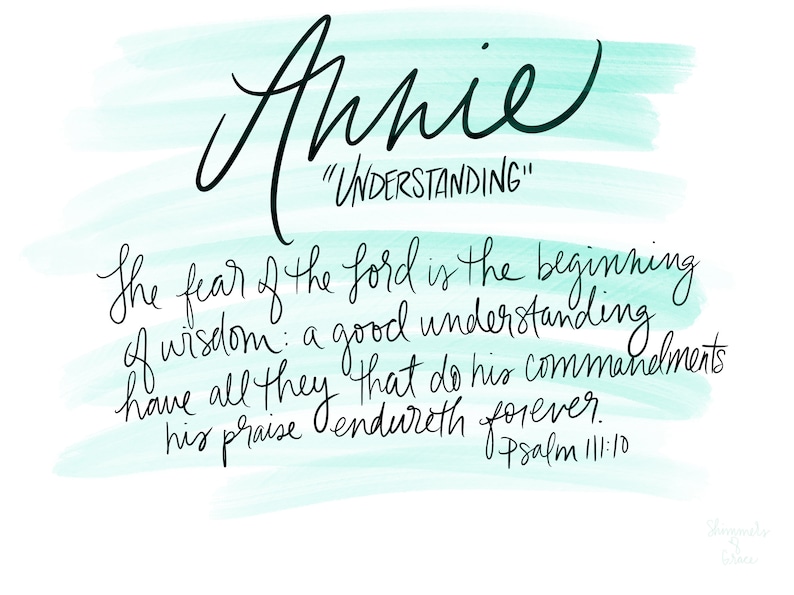 Annie
"UNDERSTANDING"
The fear of the Lord is the beginning
of wisdom: a good understanding
have all they that do his commandments
his praise endureth forever.
Psalm 111:10
of
Grace